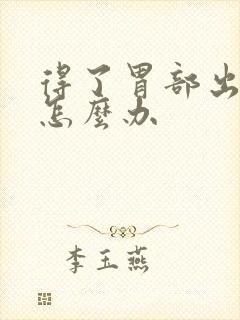 得了胃部出
怎麼办
李玉燕